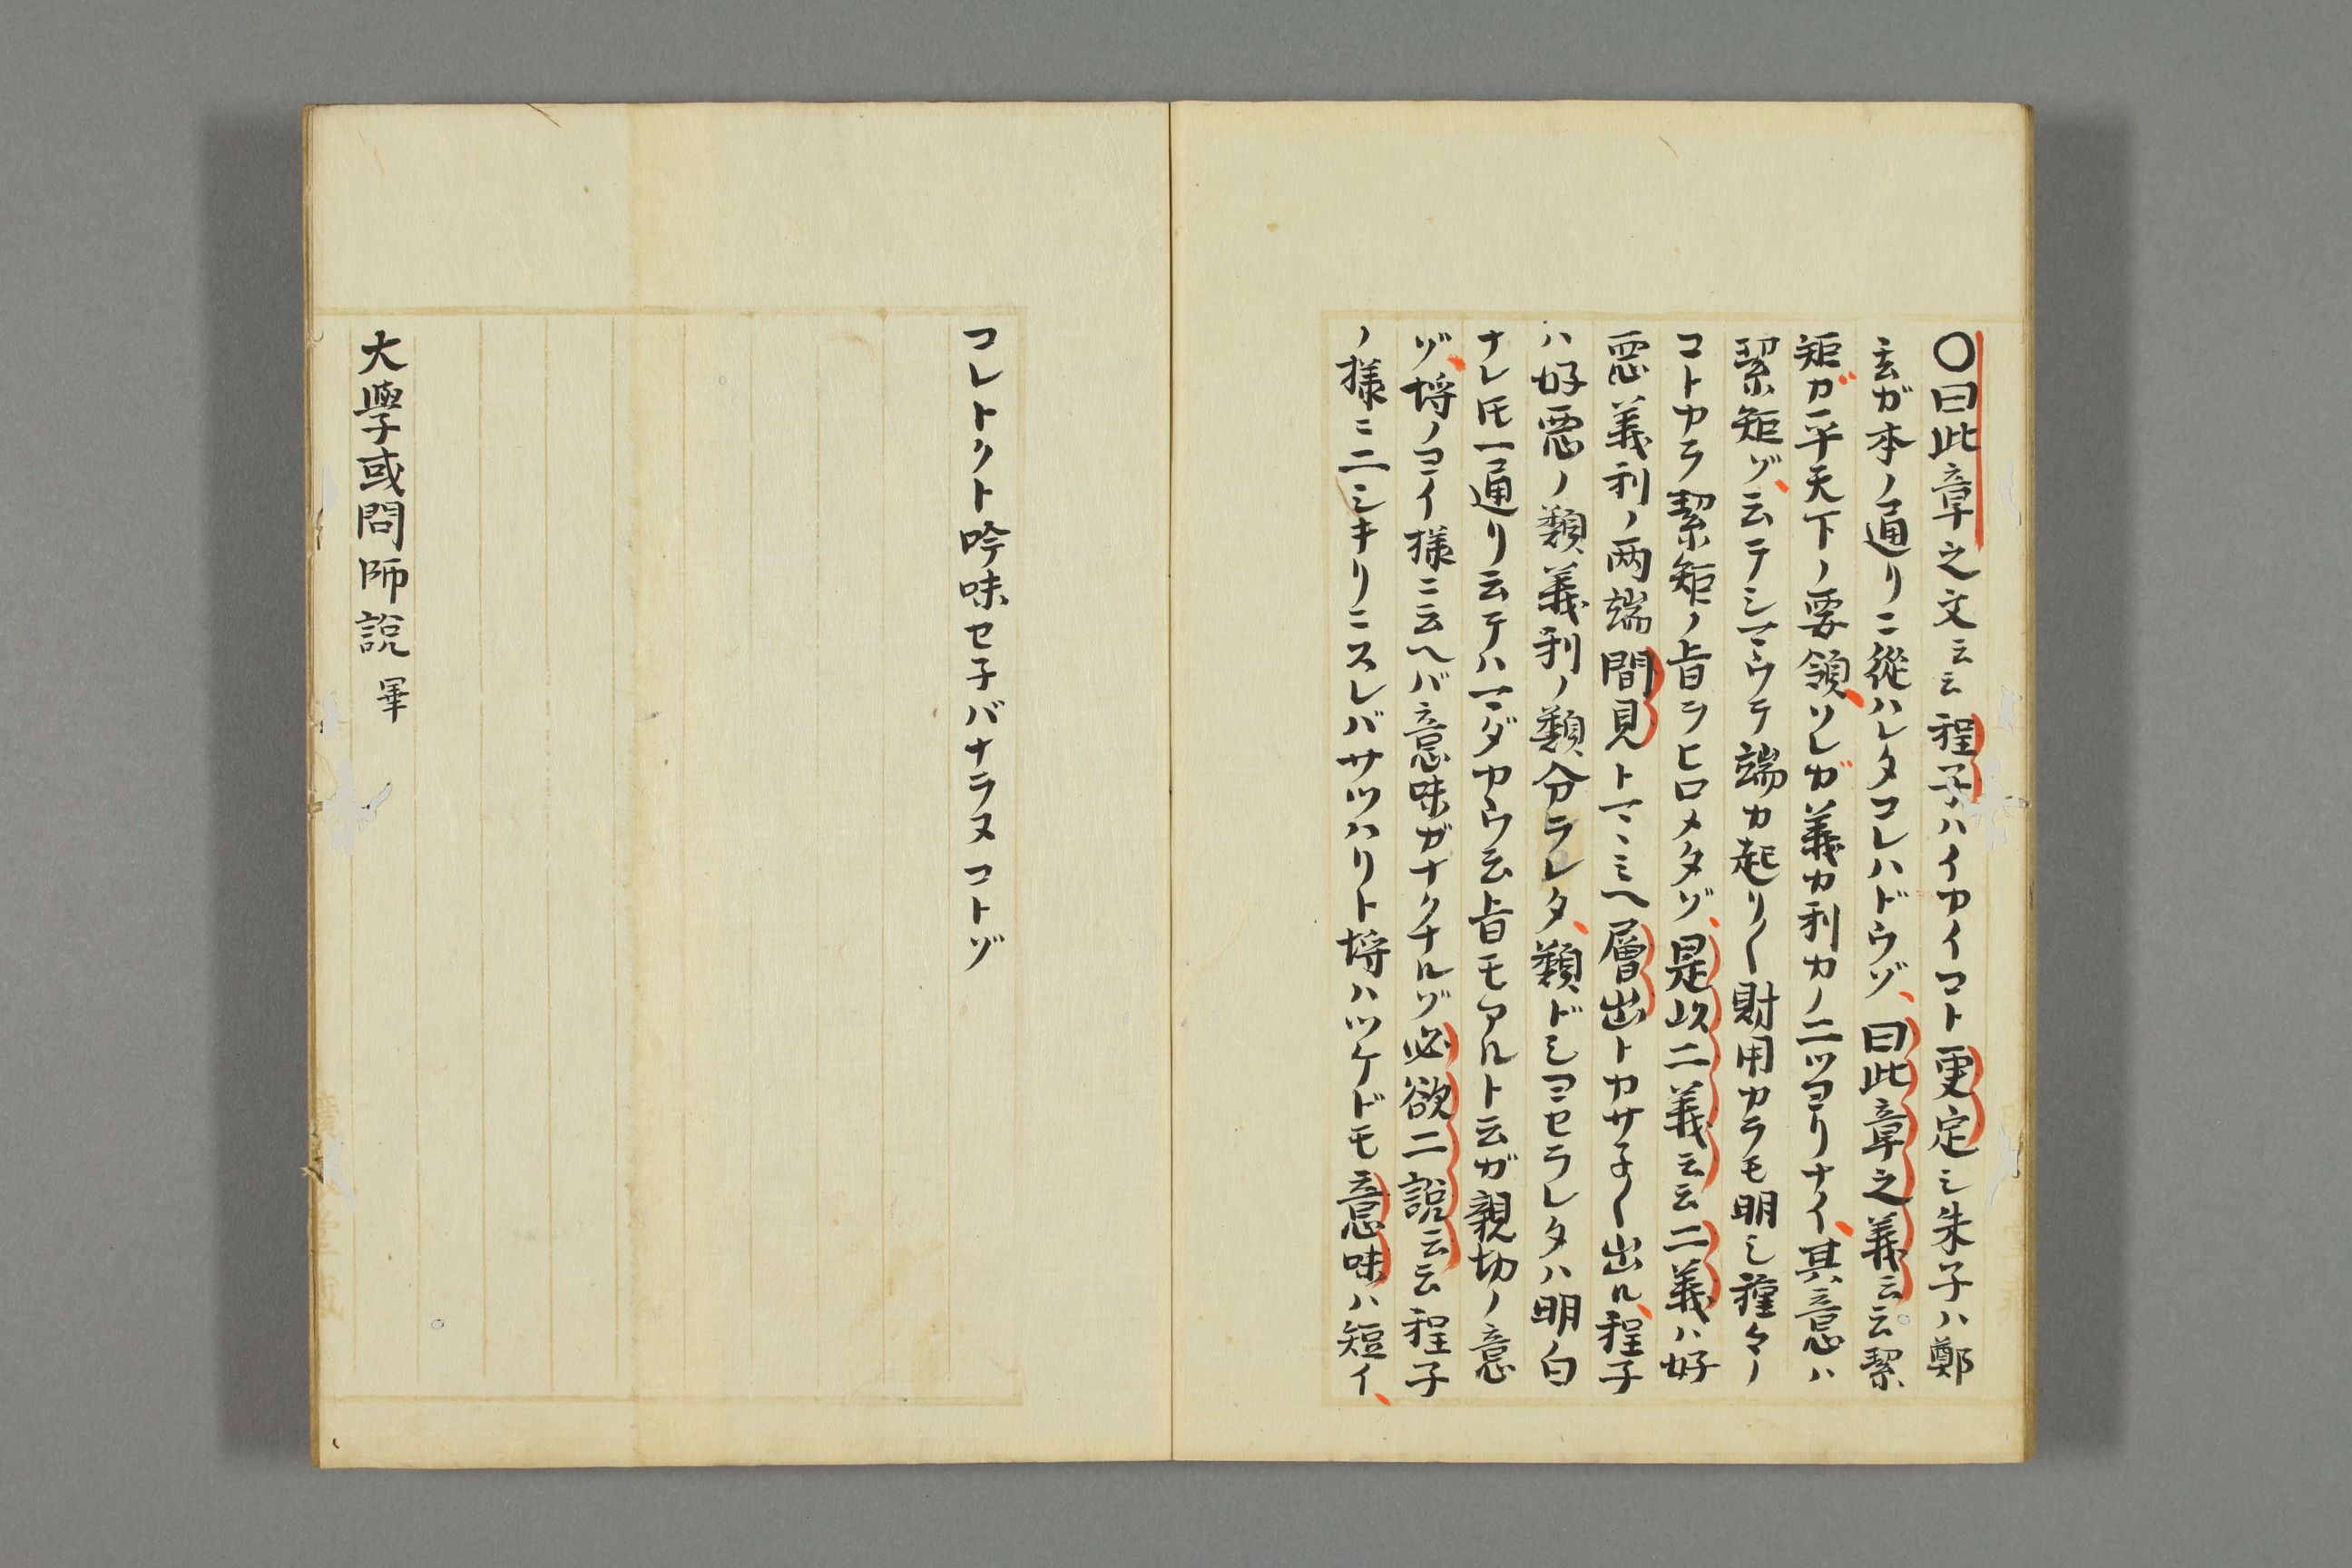 〇曰此章之文云云程子ハイカイコト更定シ朱子ハ鄭
玄ガ本ノ通リニ從ハレタコレハドウゾ、曰此章之義云云絜
矩ガ平天下ノ要領、ソレガ義カ利カノ二ツヨリナイ、其意ハ
絜矩ゾ、云テシマウテ端カ起リ〱財用カラモ明シ種々ノ
コトカラ絜矩ノ旨ヲヒロメタゾ、是以二義云云二義ハ好
惡義利ノ两端間見トマヽミヘ層出トカサ子〱出ル、程子
ハ好惡ノ類義利ノ類分ラレタ、類ドシヨセラレタハ明白
ナレ𪜈一通リ云テハマダカウ云旨モアルト云ガ親切ノ意
ゾ、埓ノヨイ様ニ云ヘバ意味ガナクナルゾ必欲二說云云程子
ノ様ニ二シキリニスレバサツハリト埓ハツケドモ意味ハ短イ、
コレトクト吟味セ子バナラヌコトゾ
大學或問師說 畢